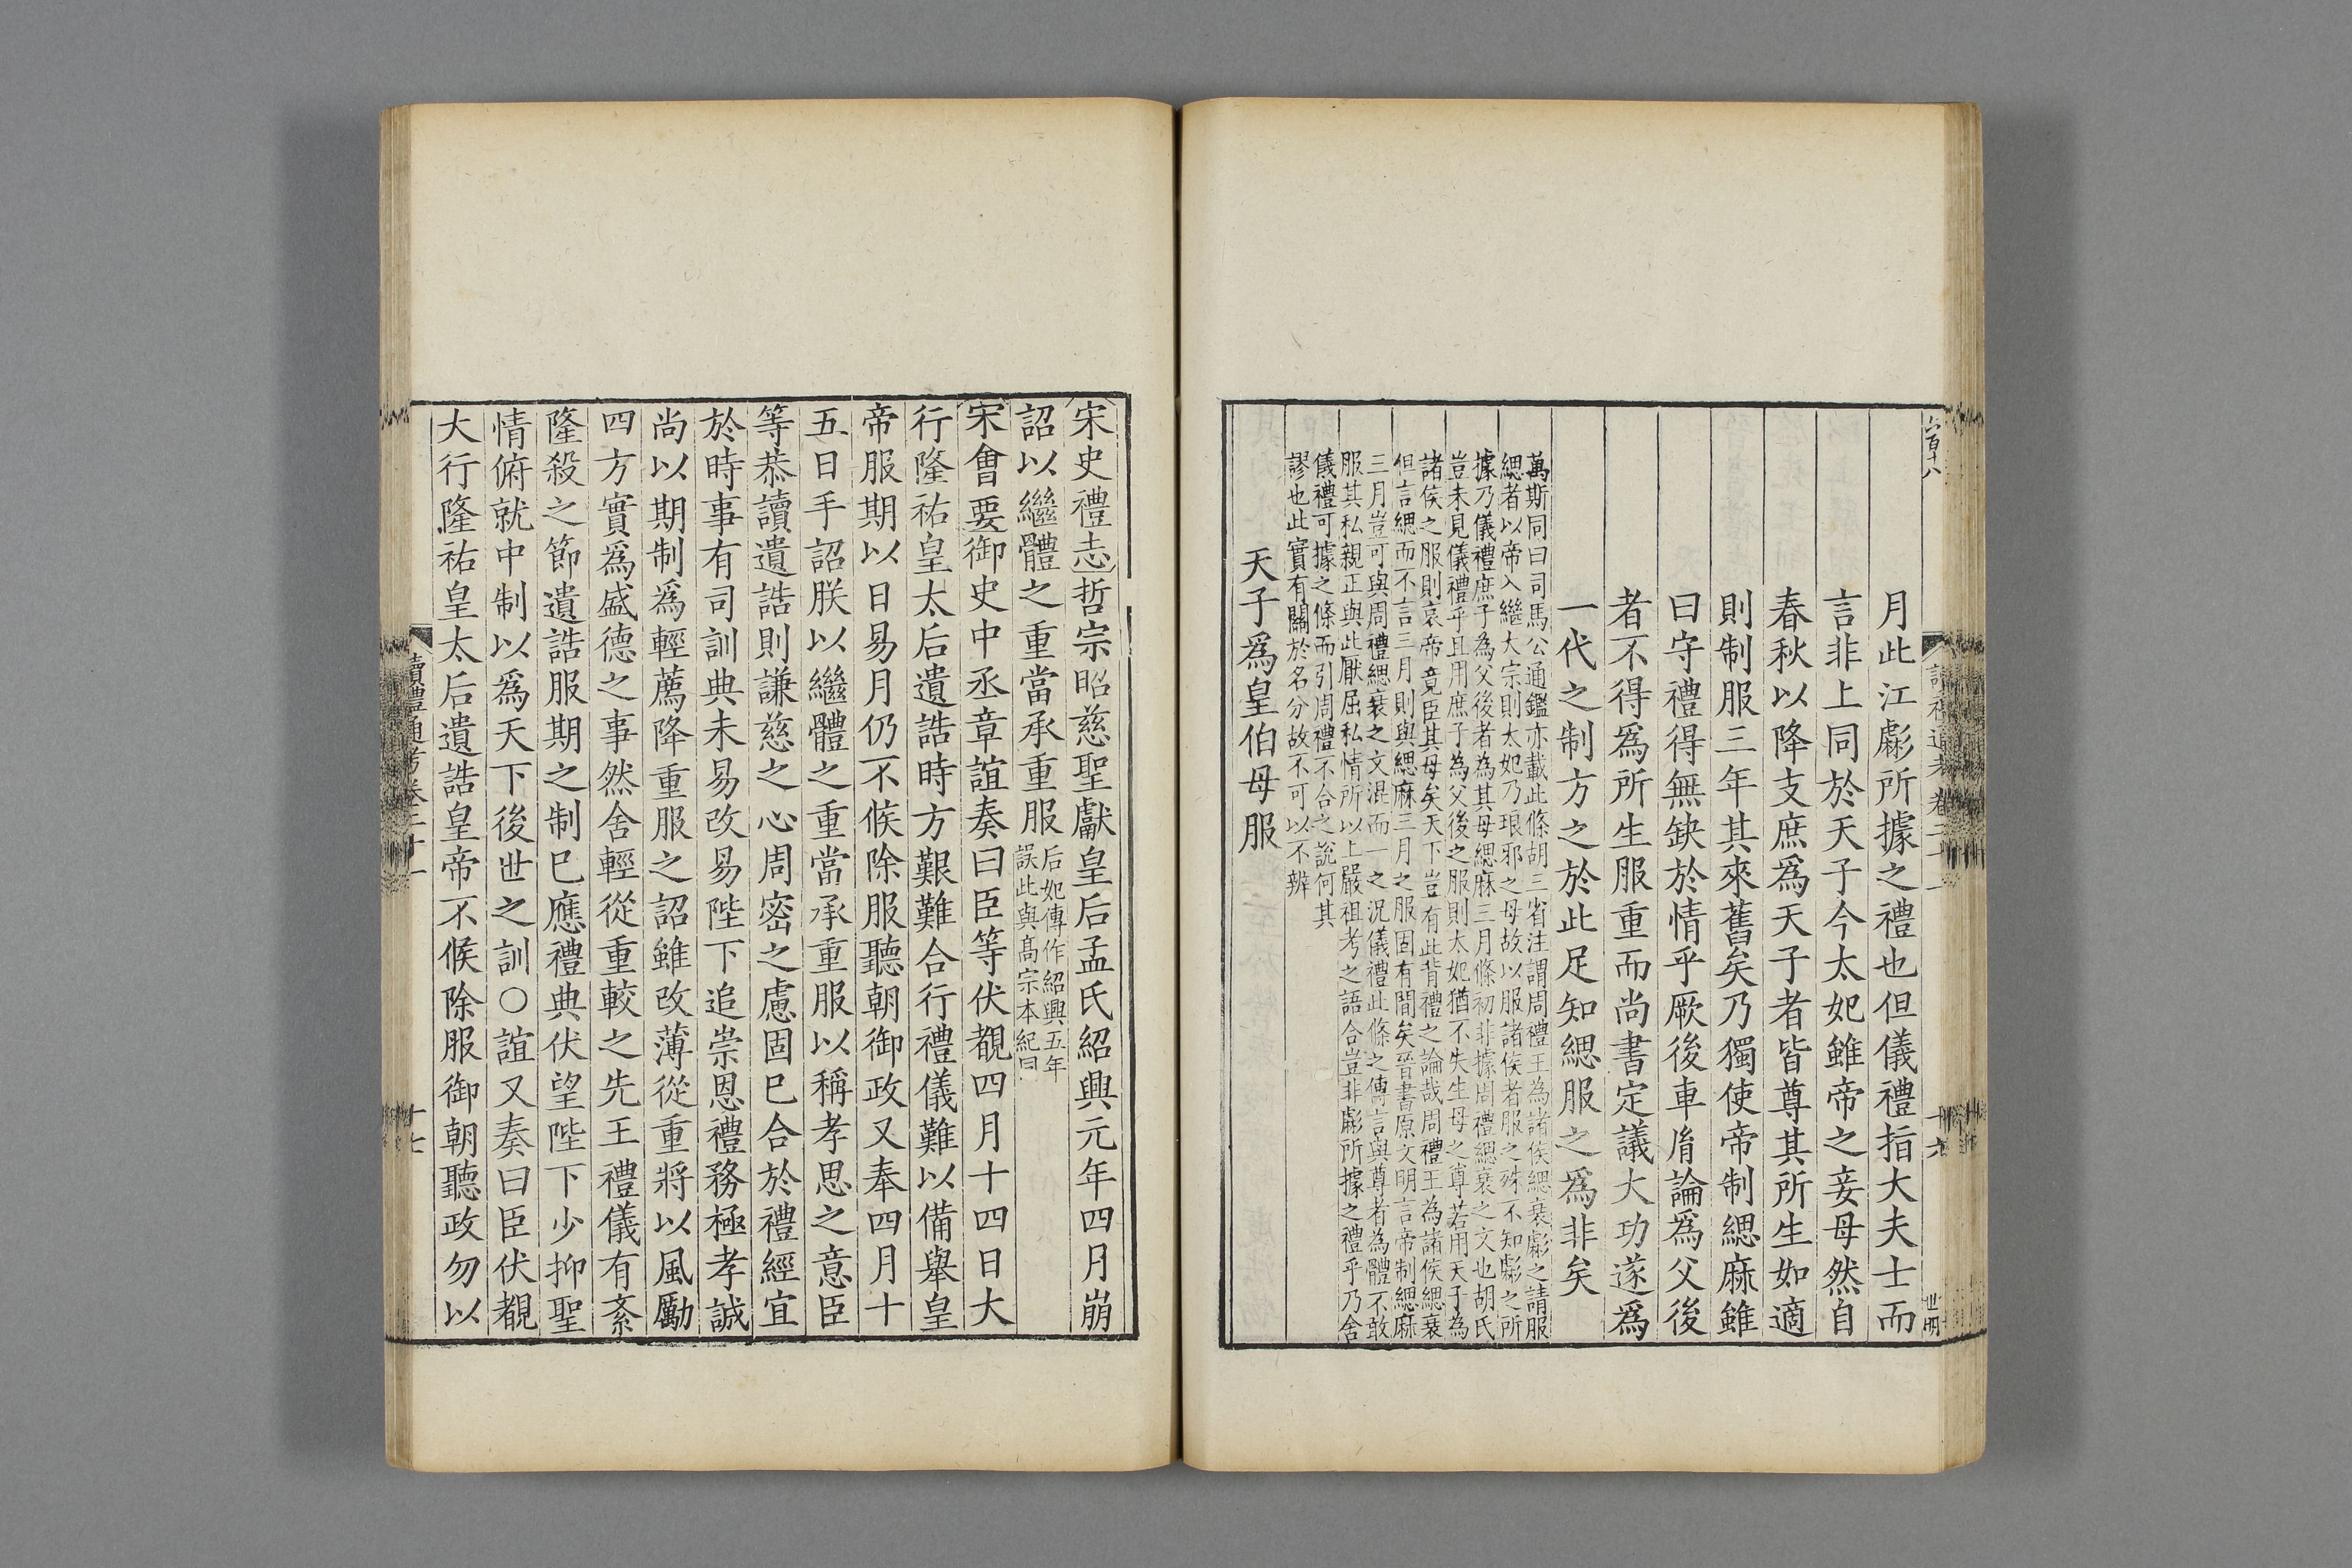 六百十八
讀禮通考卷二十一
十六
世明
月此江彪所據之禮也但儀禮指大夫士而
言非上同於天子今太妃雖帝之妾母然自
春秋以降支庶爲天子者皆尊其所生如適
則制服三年其來舊矣乃獨使帝制緦麻雖
曰守禮得無缺於情乎厥後車胤論爲父後
者不得爲所生服重而尚書定議大功遂爲
一代之制方之於此足知緦服之爲非矣
萬斯同曰司馬公通鑑亦載此條胡三省注謂周禮王為諸侯緦衰彪之請服
緦者以帝入繼大宗則太妃乃琅邪之母故以服諸侯者服之殊不知彪之所
據乃儀禮庶子為父後者為其母緦麻三月條初非據周禮緦衰之文也胡氏
豈未見儀禮乎且用庶子為父後之服則太妃猶不失生母之尊若用天子為
諸侯之服則哀帝竟臣其母矣天下豈有此背禮之論哉周禮王為諸侯緦衰
但言緦而不言三月則與緦麻三月之服固有間矣晉書原文明言帝制緦麻
三月豈可與周禮緦衰之文混而一之況儀禮此條之傳言與尊者為體不敢
服其私親正與此厭屈私情所以上嚴祖考之語合豈非彪所據之禮乎乃舍
儀禮可據之條而引周禮不合之說何其
謬也此實有關於名分故不可以不辨
天子爲皇伯母服
宋史禮志哲宗昭慈聖獻皇后孟氏紹興元年四月崩
詔以繼體之重當承重服后妃傳作紹興五年
誤此與高宗本紀同
宋會要御史中丞章誼奏曰臣等伏覩四月十四日大
行隆祐皇太后遺誥時方艱難合行禮儀難以備舉皇
帝服期以日易月仍不候除服聽朝御政又奉四月十
五日手詔朕以繼體之重當承重服以稱孝思之意臣
等恭讀遺誥則謙慈之心周密之慮固已合於禮經宜
於時事有司訓典未易改易陛下追崇恩禮務極孝誠
尚以期制爲輕薦降重服之詔雖改薄從重將以風勵
四方實爲盛德之事然舍輕從重較之先王禮儀有紊
隆殺之節遺誥服期之制已應禮典伏望陛下少抑聖
情俯就中制以爲天下後世之訓○誼又奏曰臣伏覩
大行隆祐皇太后遺誥皇帝不候除服御朝聽政勿以
讀禮通考卷二十一
十七